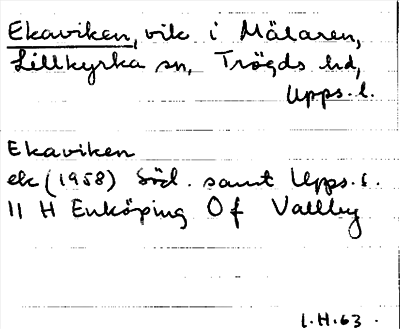 Ekaviken, vik i Mälaren,
Lillkyrka sn, Trögds hd,
Upps. l.
Ekaviken
ek (1958) Söd. samt Upps. l.
11 H Enköping Of Vallby
I.H.63.